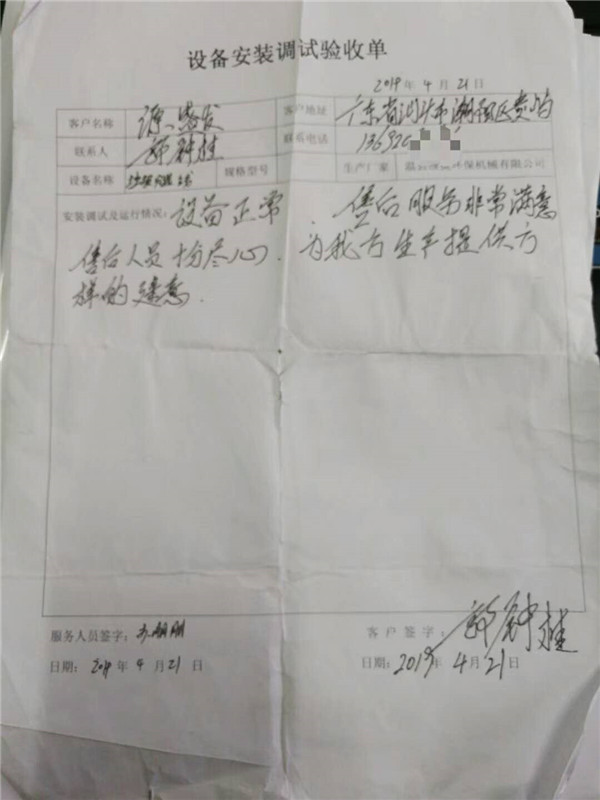 设备安装调试验收单
2019年4月21日
客户名称 源盛发 客户地址 广东省汕头市潮阳区贵屿
联系人 郭钟桂 联系电话 13692
设备名称 规格型号 生产厂家 环保机械有限公司
安装调试及运行情况：设备正常. 售后服务非常满意
售后人员十分尽心. 为我方生产提供方
样的建意.
服务人员签字： 客户签字：郭钟桂
日期：2019年4月21日 日期：2019年4月21日